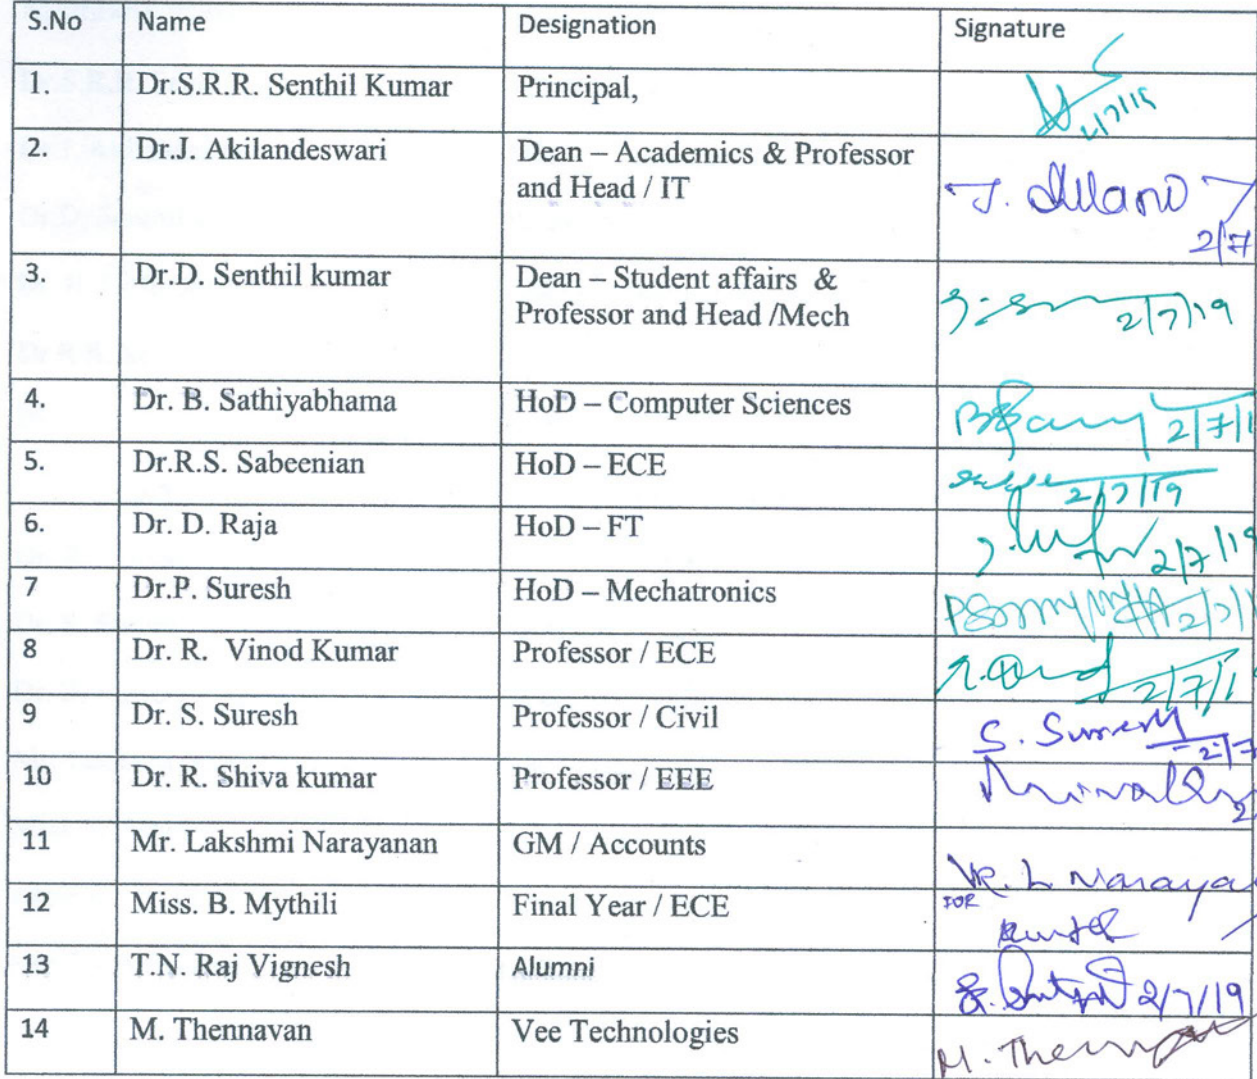 S.No Name Designation Signature
1. Dr.S.R.R. Senthil Kumar Principal, 2/7/19
2. Dr.J. Akilandeswari Dean – Academics & Professor
and Head / IT
2/7
3. Dr.D. Senthil kumar Dean – Student affairs &
Professor and Head /Mech 2/7/19
4. Dr. B. Sathiyabhama HoD – Computer Sciences 2/7/1
5. Dr.R.S. Sabeenian HoD – ECE 2/7/19
6. Dr. D. Raja HoD – FT 2/7/19
7 Dr.P. Suresh HoD – Mechatronics
8 Dr. R. Vinod Kumar Professor / ECE 2/7/1
9 Dr. S. Suresh Professor / Civil S. Suresh 2/7
10 Dr. R. Shiva kumar Professor / EEE
11 Mr. Lakshmi Narayanan GM / Accounts
12 Miss. B. Mythili Final Year / ECE FOR
13 T.N. Raj Vignesh Alumni 2/7/19
14 M. Thennavan Vee Technologies